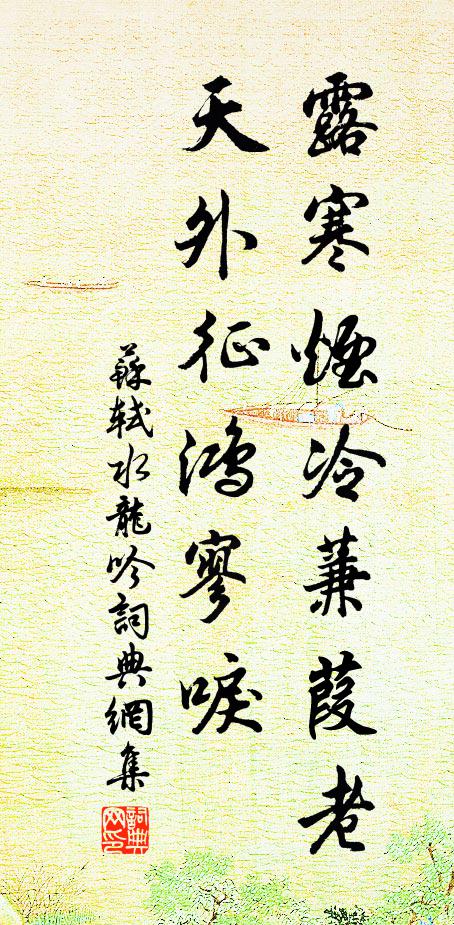 露寒煙冷蒹葭老
天外征鴻寥唳
蘇軾水龍吟詞典網集
詞典網印